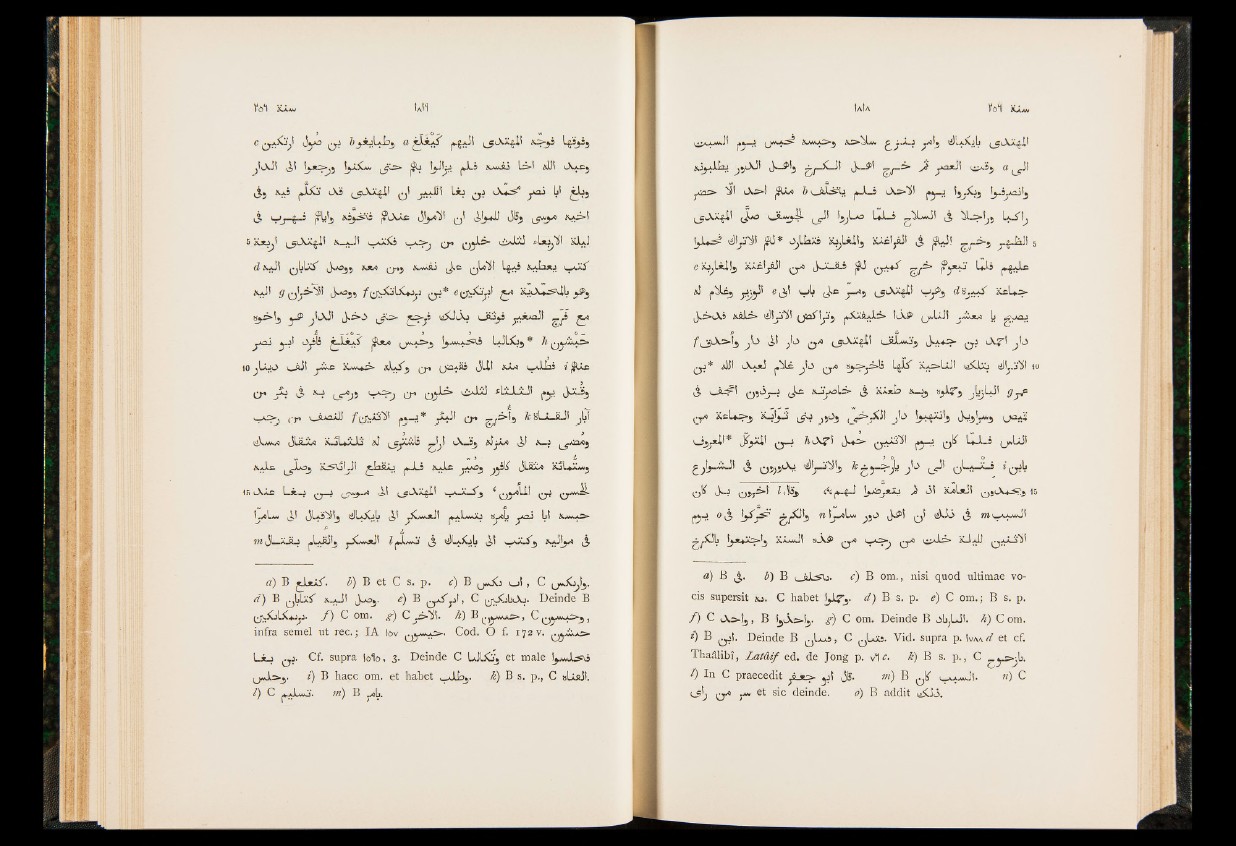 سنة ٢٥٦ ١٨١٨
المهتدى بايكباك وامر بنزع سلاحه وحبسه فحبس يوم السبت
الى a وقت العصر ثم خرج اهل الكرخ واهل الدور يطلبونه
وانصرفوا وبكروا يوم الاحد فلم يتخلّف b منهم احد الّا حضر
راكبا وراجلا فى السلاح فلمّا صاروا الى الجوسق صلّى المهتدى
5 الظهر وخرج اليهم فى الفراغنة والمغاربة فتطارد *لهم الاتراك فحملوا
عليهم فلمّا تبعوهم خرج كمين لهم فقُتل من الفراغنة والمغاربة c
جماعة كبيرة d وهرب المهتدى ومرّ على باب ابى e الوزير وغلام له
يصيح يا معشر الناس هذا خليفتكم وتراكض الاتراك خلفه فدخل
دار احمد بن جميل وتسلّق المهتدى من دار الى دار واحدق f
10 الاتراك بتلك الناحية كلّها فاخرجوه من دار غلام لعبد الله *بن
عمر g البازيار وحملوه وبه طعنة فى خاصرته على برذون اعجف فى
قميص وسراويل وانتهبوا دار الكرخى ودور بنى ثوابة وجماعة من
الناس فلمّا كان يوم الاثنين حُمل احمد h بن المتوكّل *المعروف
بابن i فتيان الى دار يارجوخ k والاتراك يدورون فى الشوارع
15 ويحمدون العامّة اذ لم يتعرّضوا لهم، وقال l اخرون بل كان
السبب m فى ذلك ان اهل دور سامرّا n والكرخ تحرّكوا فى o يوم
الاثنين لليلة خلت من رجب من هذه السنة واجتمعوا بالكرخ
a) B فى. b) B c) B om., nisi quod ultimae vo-
cis supersit به. C habet وحملوا. d) B s. p. e) C om.; B s. p.
f) C واخذ, B واخذوا. g) C om. Deinde B البازباد. h) C om.
i) B ابن. Deinde B C Vid. supra p. ١٧٨٨ d et cf.
Thaâlibî, Latâif ed. de Jong p. ٧٦ c. k) B s. p., C
l) In C praecedit قال ابو جعفر. m) B السبب كان. n) C
سر من راى et sic deinde. o) B addit ذلك.
سنة ٢٥٦ ١٨١٩
وفوقها فوجّه المهتدى اليهم كيغلغ a وطبايغو b بن صول ارتكين c
وعبد الله اخا نفسه فلم يزالوا بهم حتى سكنوا ورجعوا الى الدار
وبلغ ابا نصر محمد بن بغا الكبير ان المهتدى قد تكلّم فيه وفى
اخيه موسى وقال للموالى ان الاموال عندهم فتخوّفه وايّاهم فهرب فى
5 ليلة الاربعاء لثلث خلون من رجب فكتب اليه المهتدى اربعة
كتب يعطيه فيها الامان على نفسه ومن معه ووصل كتابان اليه d
وهو بالمحمّديّة مع ابرتكين e *بن برنمكاتكين f ووصل الآخران g اليه
مع فرج الصغير فوثق بذلك فرجع حتى دخل الدار هو واخوه
حبشون h *وبكالبا فحُبسوا وحُبس معهم كيغلغ فأُفرد ابو نصر
10 عنهم i فطُلب منه المال فقبض من وكيله خمسة عشر الف دينار
وقُتل يوم الثلثاء لثلث خلون من رجب ورمى به فى بئر من
آبار القناة k وأُخرج من البئر *يوم الاثنين f للنصف من رجب
ومُضى به الى منزله وقد اراح فاشتُرى له ثلثمائة مثقال مسك
وستّمائة مثقال كافور وصُيّر عليه فلم ينقطع الرائحة وصلّى عليه
15 الحسن بن المأمون، وكتب المهتدى الى موسى بن بغا عند
حبسه ابا نصر يأمره بتسليم العسكر الى بايكباك والاقبال الى سامرّا
فى مواليه وكتب الى بايكباك فى تسلّم l العسكر والقيام بقتال m
a) B b) B et C s. p. c) B C
d) B ووصل اليه كتابان. e) B C Deinde B
f) C om. g) C الاخر. h) B C
infra semel ut rec.; IA ١٥٧ Cod. O f. 172 v.
بن بغا. Cf. supra ١٥٦٥, 3. Deinde C et male فحبسوا
وحبس. i) B haec om. et habet وطلب. k) B s. p., C
l) C تسليم. m) B يامر.